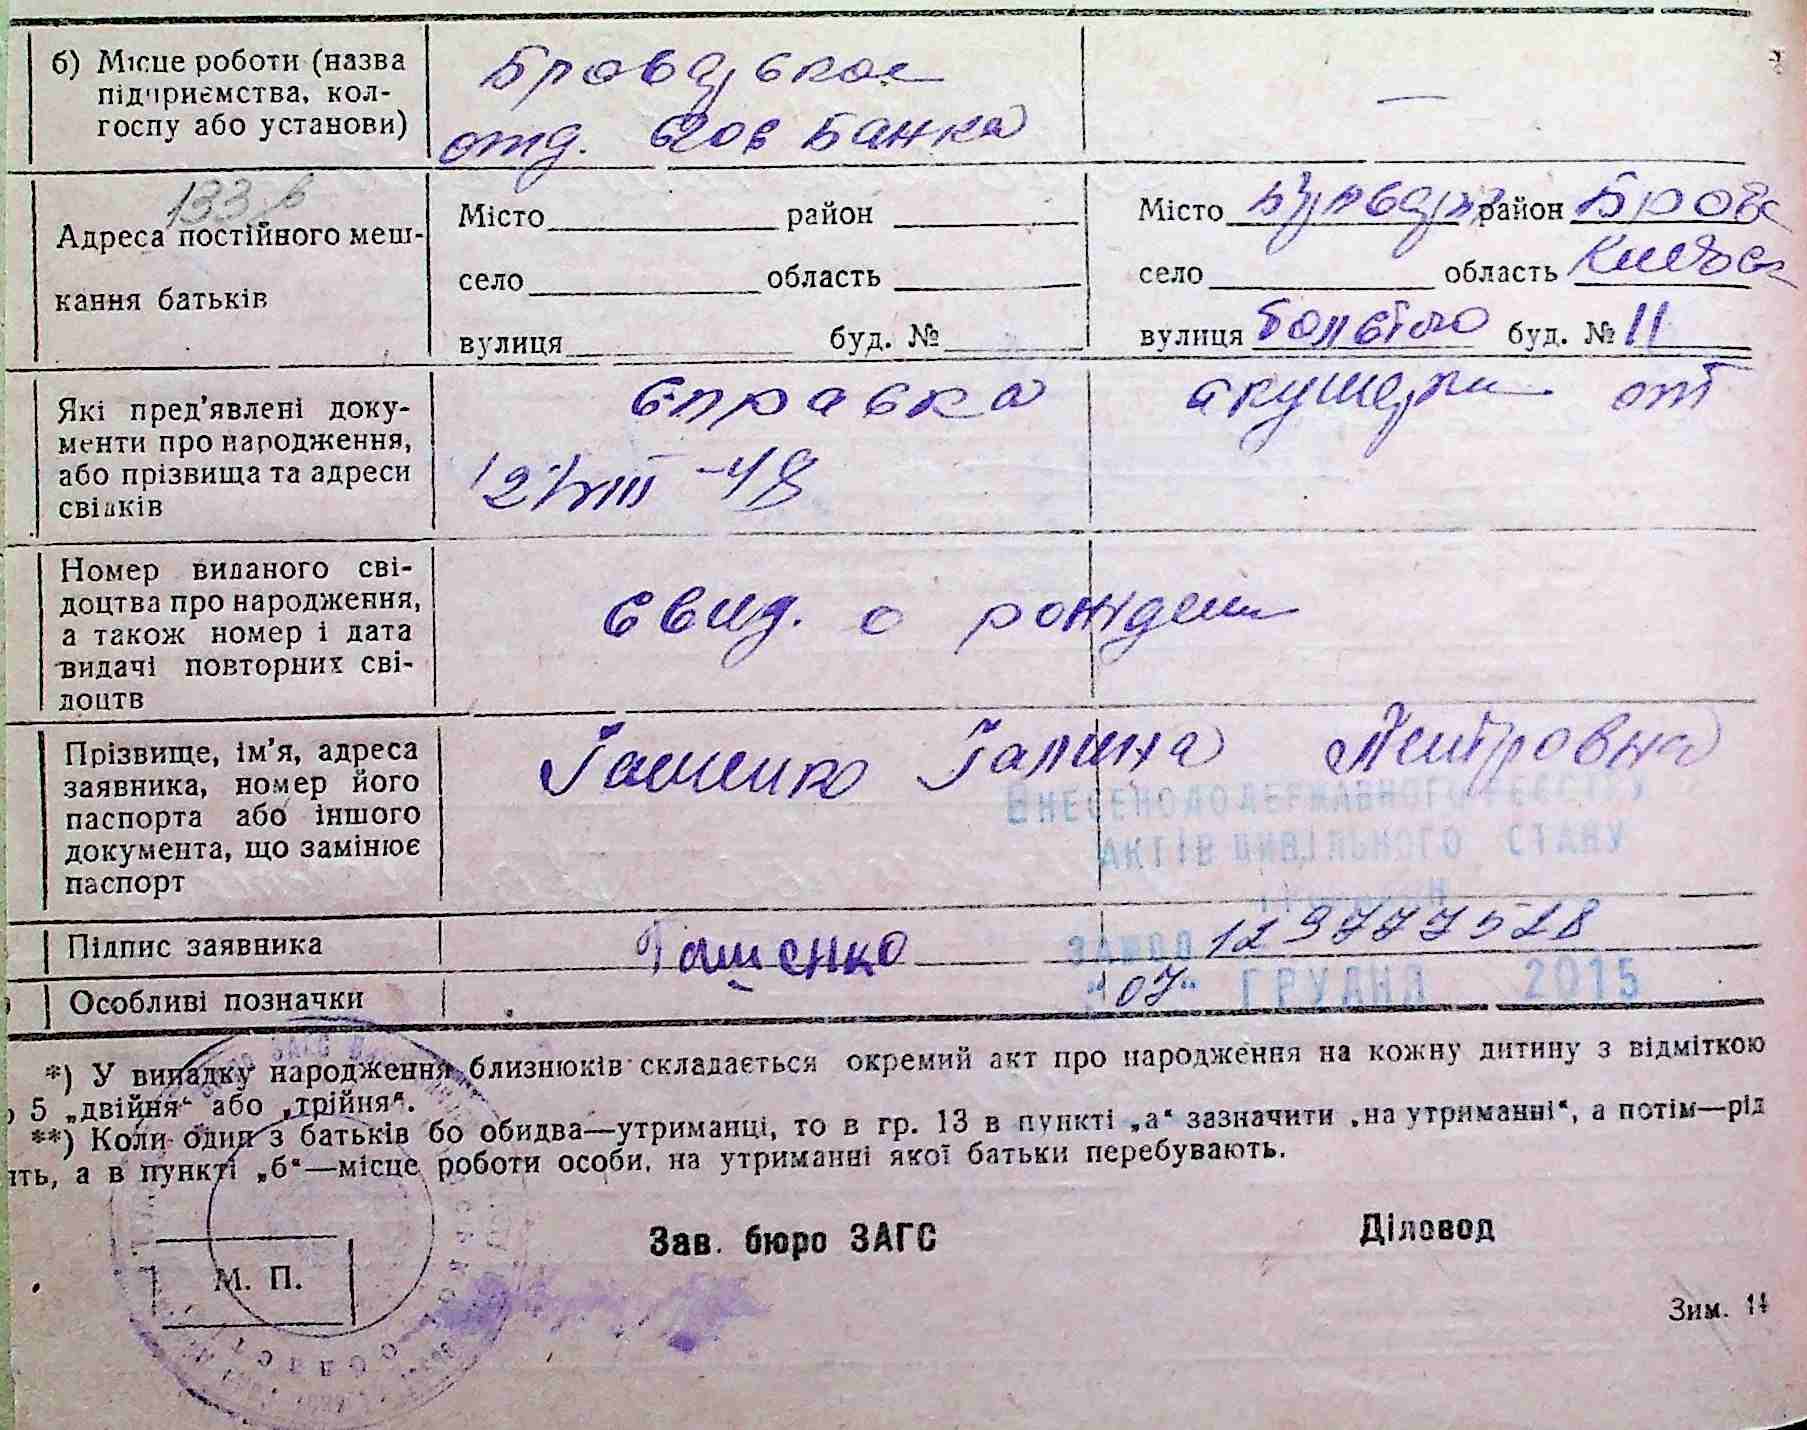 б) Місце роботи (назва
підприємства, кол-
госпу або установи)
отд. Гос Банка
—
133 в
Адреса постійного меш-
кання батьків
Місто район
село область
вулиця буд. №
Місто район Бров
село область Киевск
вулиця буд. № 11
Які пред'явлені доку-
менти про народження,
або прізвища та адреси
свідків
справка акушерки от
VIII -48
Номер виданого сві-
доцтва про народження,
а також номер і дата
видачі повторних сві-
доцтв
Свид. о рожден
Прізвище, ім'я, адреса
заявника, номер його
паспорта або іншого
документа, що замінює
паспорт
Гашенко Галина Петровна
ВНЕСЕНО ДО ДЕРЖАВНОГО РЕЄСТРУ
АКТІВ ЦИВІЛЬНОГО СТАНУ
Підпис заявника
Гашенко
ЗА №00 129777528
Особливі позначки
"07" ГРУДНЯ 2015
*) У випадку народження близнюків складається окремий акт про народження на кожну дитину з відміткою
5 „двійня“ або „трійня“.
**) Коли один з батьків бо обидва—утриманці, то в гр. 13 в пункті „а“ зазначити „на утриманні“, а потім—рід
ять, а в пункті „б“—місце роботи особи, на утриманні якої батьки перебувають.
Зав. бюро ЗАГС
Діловод
М. П.
Зим. 14